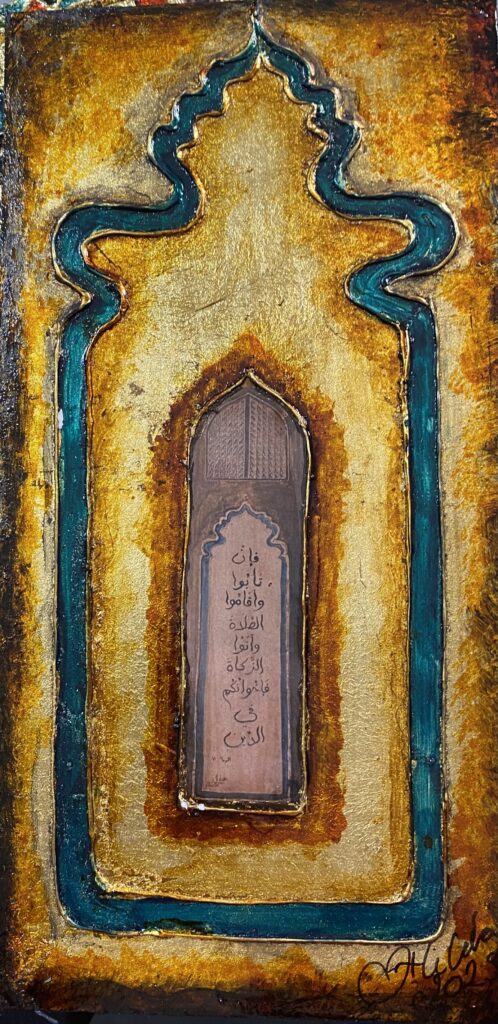 فإن
تابوا
وأقاموا
الصلاة
وآتوا
الزكاة
فإخوانكم
في
الدين